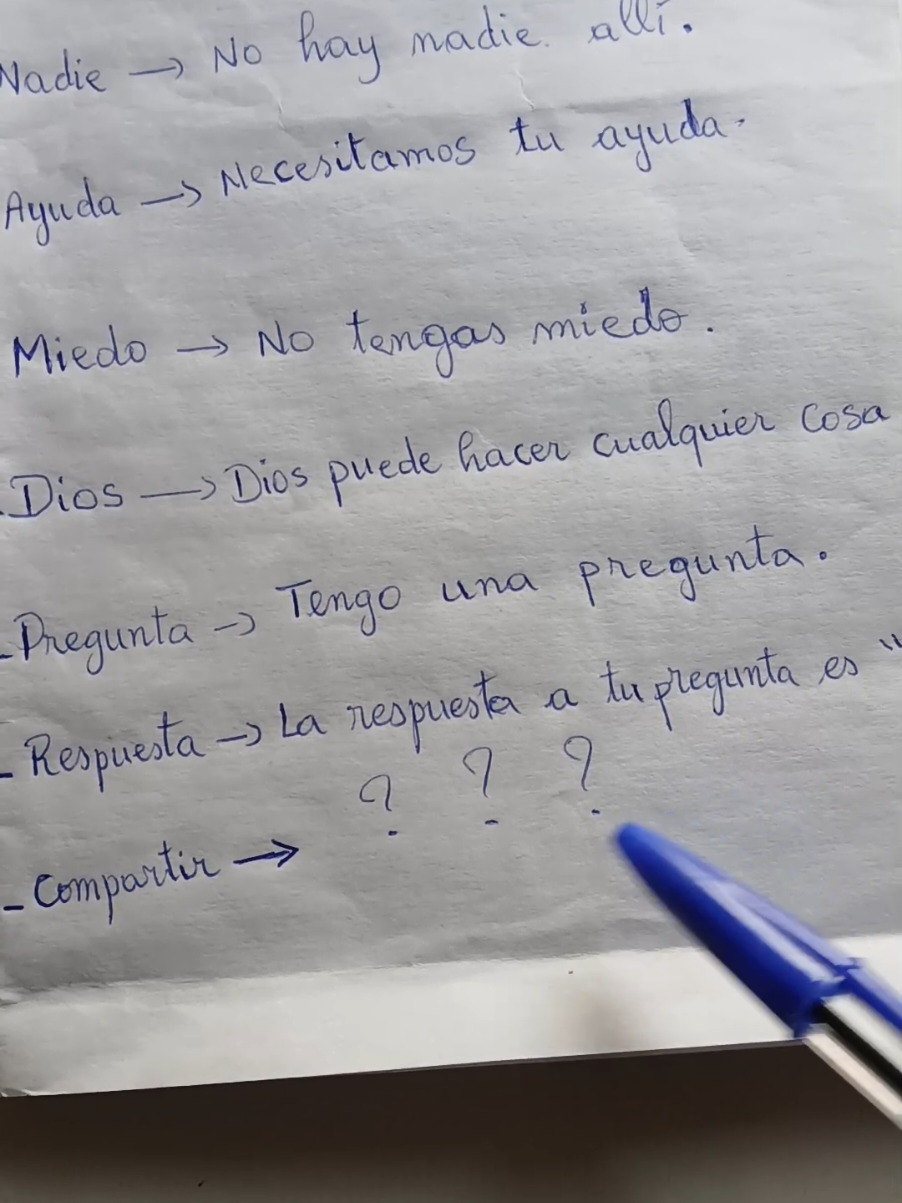 Nadie → No hay nadie. allí.
Ayuda → Necesitamos tu ayuda.
Miedo → No tengas miedo.
. Dios → Dios puede hacer cualquier cosa
- Pregunta → Tengo una pregunta.
- Respuesta → La respuesta a tu pregunta es "
? ? ?
- Compartir →